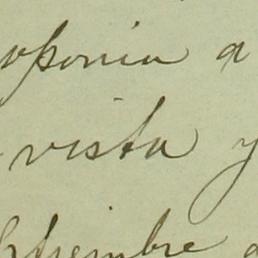 oponia a
vista y
ptiembre